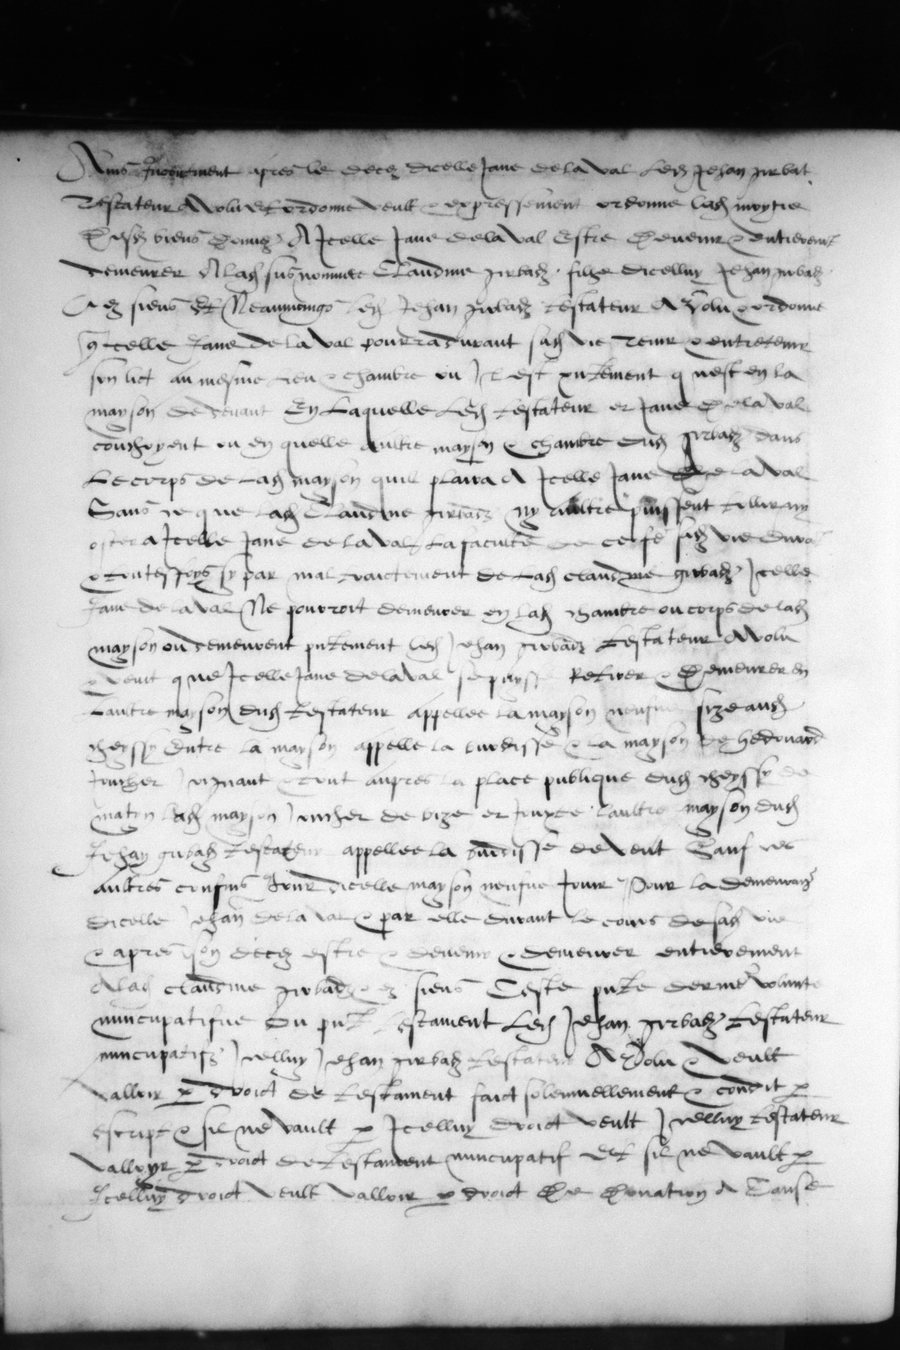 Ains Incontinent apres le decez dicelle Jane de la Val Led Jehan girbat
Testateur A volu Et ordonne veult & expressement ordonne lad moytie
Desd biens A Icelle Jane de la Val Estre & Devenir & entierement
demeurer A lad susnommee Claudine girbad filhe dicelluy Jehan girbad
& siens Et Neaulmoings Led Jehan girbad testateur A volu & ordonne
q Icelle Jane de la Val pourra durant sad vie Tenir & entretenir
son lict au mesme lieu & chambre ou Il est pntement q nest en la
mayson de devant En Laquelle Led testateur et Jane de la Val
couchoyent ou en quelle aultre mayson & chambre dud girbad dans
Le corps de Lad mayson quil plaira A Icelle Jane de la Val
Sans ce que Lad Claudine girbad ny aultre puissent tollir ny
oster a Icelle Jane de la Val La faculte de sad vie durant
& toutesfoys sy par mal traictement de Lad claudine girbad Icelle
Jane de la Val Ne pourroit demeurer en lad chambre ou corps de lad
mayson ou demeurent pntement led Jehan girbad testateur A volu
& veut que Icelle Jane de la Val se puysse Retirer & Demeurer en
Laultre mayson dud testateur appellee la mayson neufve size aud
cheyssy Entre la mayson appelle la burdisse & la mayson de hedouard
& tout aupres la place publique dud cheyssy de
matin lad mayson de bize et Jouxte laultre mayson dud
Jehan girbad testateur appellee la burdisse de vent Sauf ses
aultres confins Pour dicelle mayson neufve Jouir Pour la demeurance
dicelle Jehan de la Val & par elle durant le cours de sad vie
& apres son decez estre & devenir & demeurer entierement
A lad claudine girbad & siens Ceste pnte derniere volunte
nuncupatifve Ou pnt testament Led Jehan girbad testateur
nuncupatifz Icelluy Jehan girbad testateur A Volu & Veult
valloir p droict de testament faict solemnellement & condit p
escript & sil ne vault p Icelluy droict veult Icelluy testateur
valloyr p droict de testament nuncupatif Et sil ne vault p
Icelluy droict veult valloir p droict De Donation A Cause